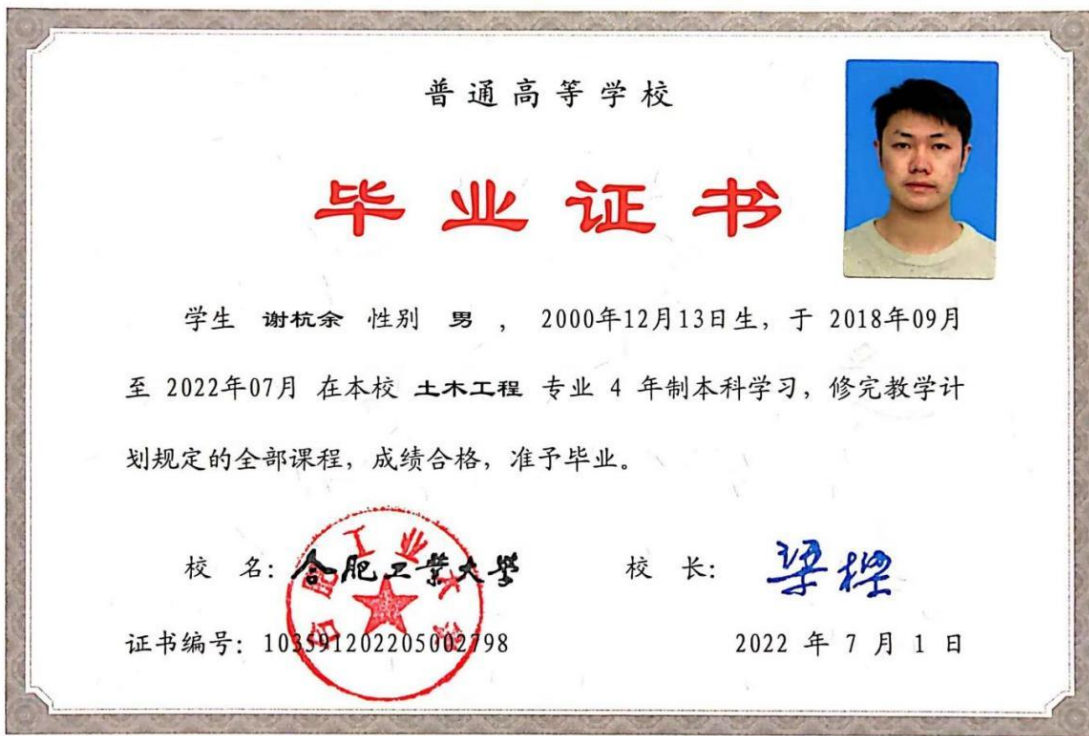 普通高等学校
毕业证书
学生 谢杭余 性别 男 ， 2000年12月13日生，于 2018年09月
至 2022年07月 在本校 土木工程 专业 4 年制本科学习，修完教学计
划规定的全部课程，成绩合格，准予毕业。
校 名：合肥工業大學 校 长：梁樑
合肥工业大学
证书编号：103591202205002798 2022 年 7 月 1 日